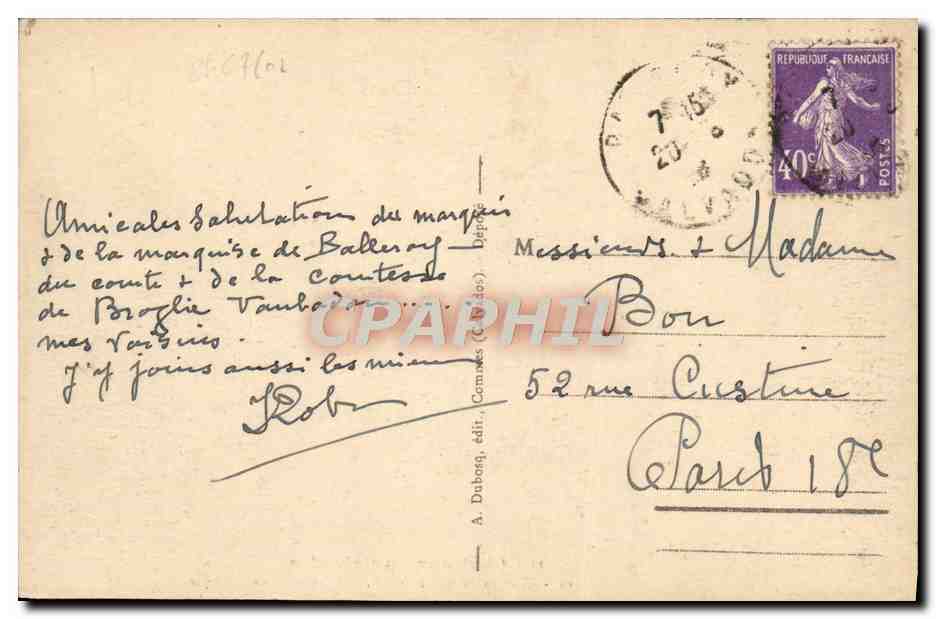 Amicales Salutations du marquis
& de la marquise de Balleroy
du comte & de la comtesse
de Broglie Vaubadon.....
mes voisins.
J'y joins aussi les miens
A. Dubosq, édit., Commes (Calvados). Déposé
Messieurs & Madame
Bon
52 rue Custine
Paris 18e
REPUBLIQUE FRANÇAISE
40c
POSTES
7 15
20
CALVADOS
CPAPHIL